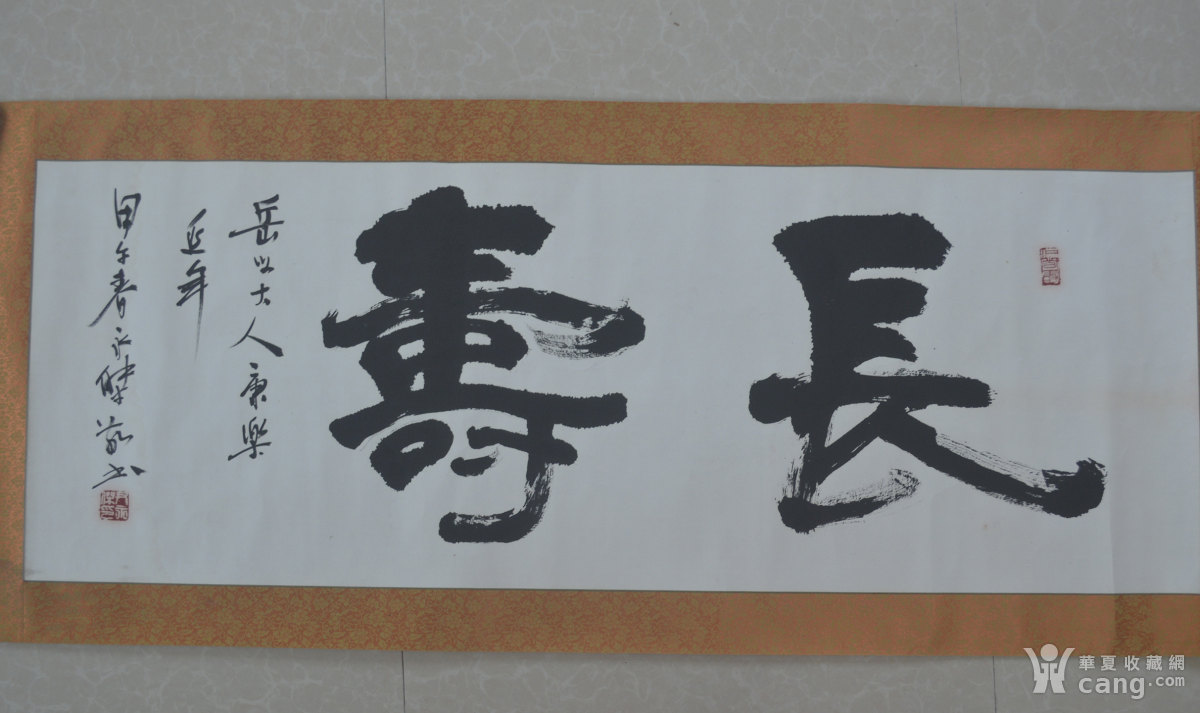 長壽
岳父大人康樂
延年
甲午春永傑敬書
華夏收藏網
cang.com